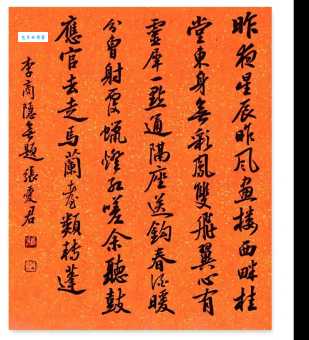 昨夜星辰昨夜風畫樓西畔桂
堂東身無彩鳳雙飛翼心有
靈犀一點通隔座送鉤春酒暖
分曹射覆蠟燈紅嗟余聽鼓
應官去走馬蘭臺類轉蓬
李商隱無題張愛君